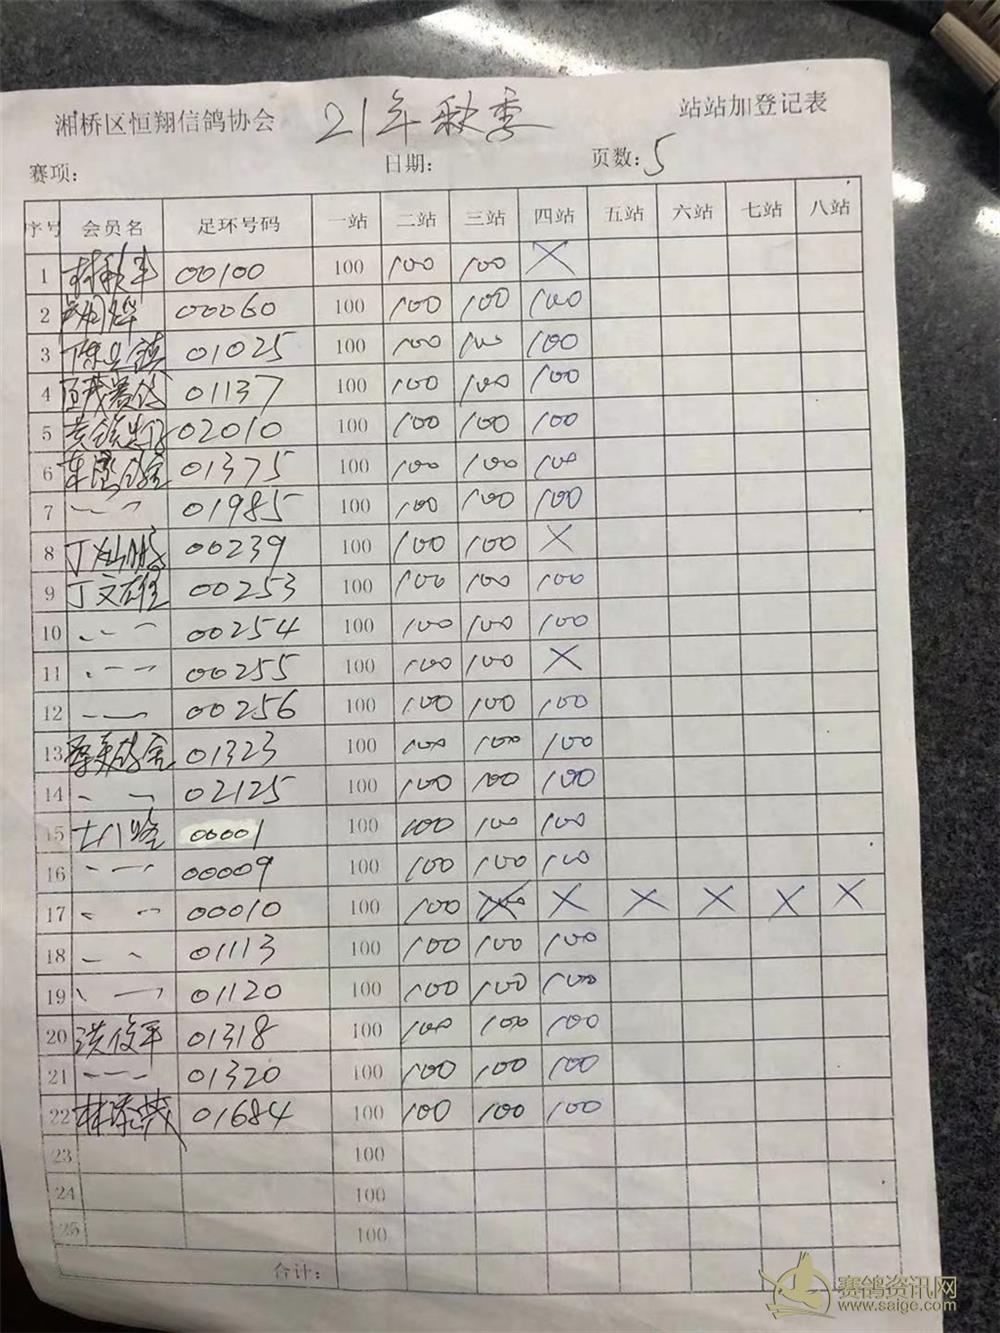 湘桥区恒翔信鸽协会 21年秋季 站站加登记表
赛项: 日期: 页数: 5
序号 会员名 足环号码 一站 二站 三站 四站 五站 六站 七站 八站
1 00100 100 100 100 X
2 00060 100 100 100 100
3 01025 100 100 100 100
4 01137 100 100 100 100
5 02010 100 100 100 100
6 01375 100 100 100 100
7 01985 100 100 100 100
8 00239 100 100 100 X
9 丁文雄 00253 100 100 100 100
10 00254 100 100 100 100
11 00255 100 100 100 X
12 00256 100 100 100 100
13 01323 100 100 100 100
14 02125 100 100 100 100
15 00001 100 100 100 100
16 00009 100 100 100 100
17 00010 100 100 X X X X X X
18 01113 100 100 100 100
19 01120 100 100 100 100
20 洪俊平 01318 100 100 100 100
21 01320 100 100 100 100
22 01684 100 100 100 100
23 100
24 100
25 100
合计:
赛鸽资讯网
www.saige.com